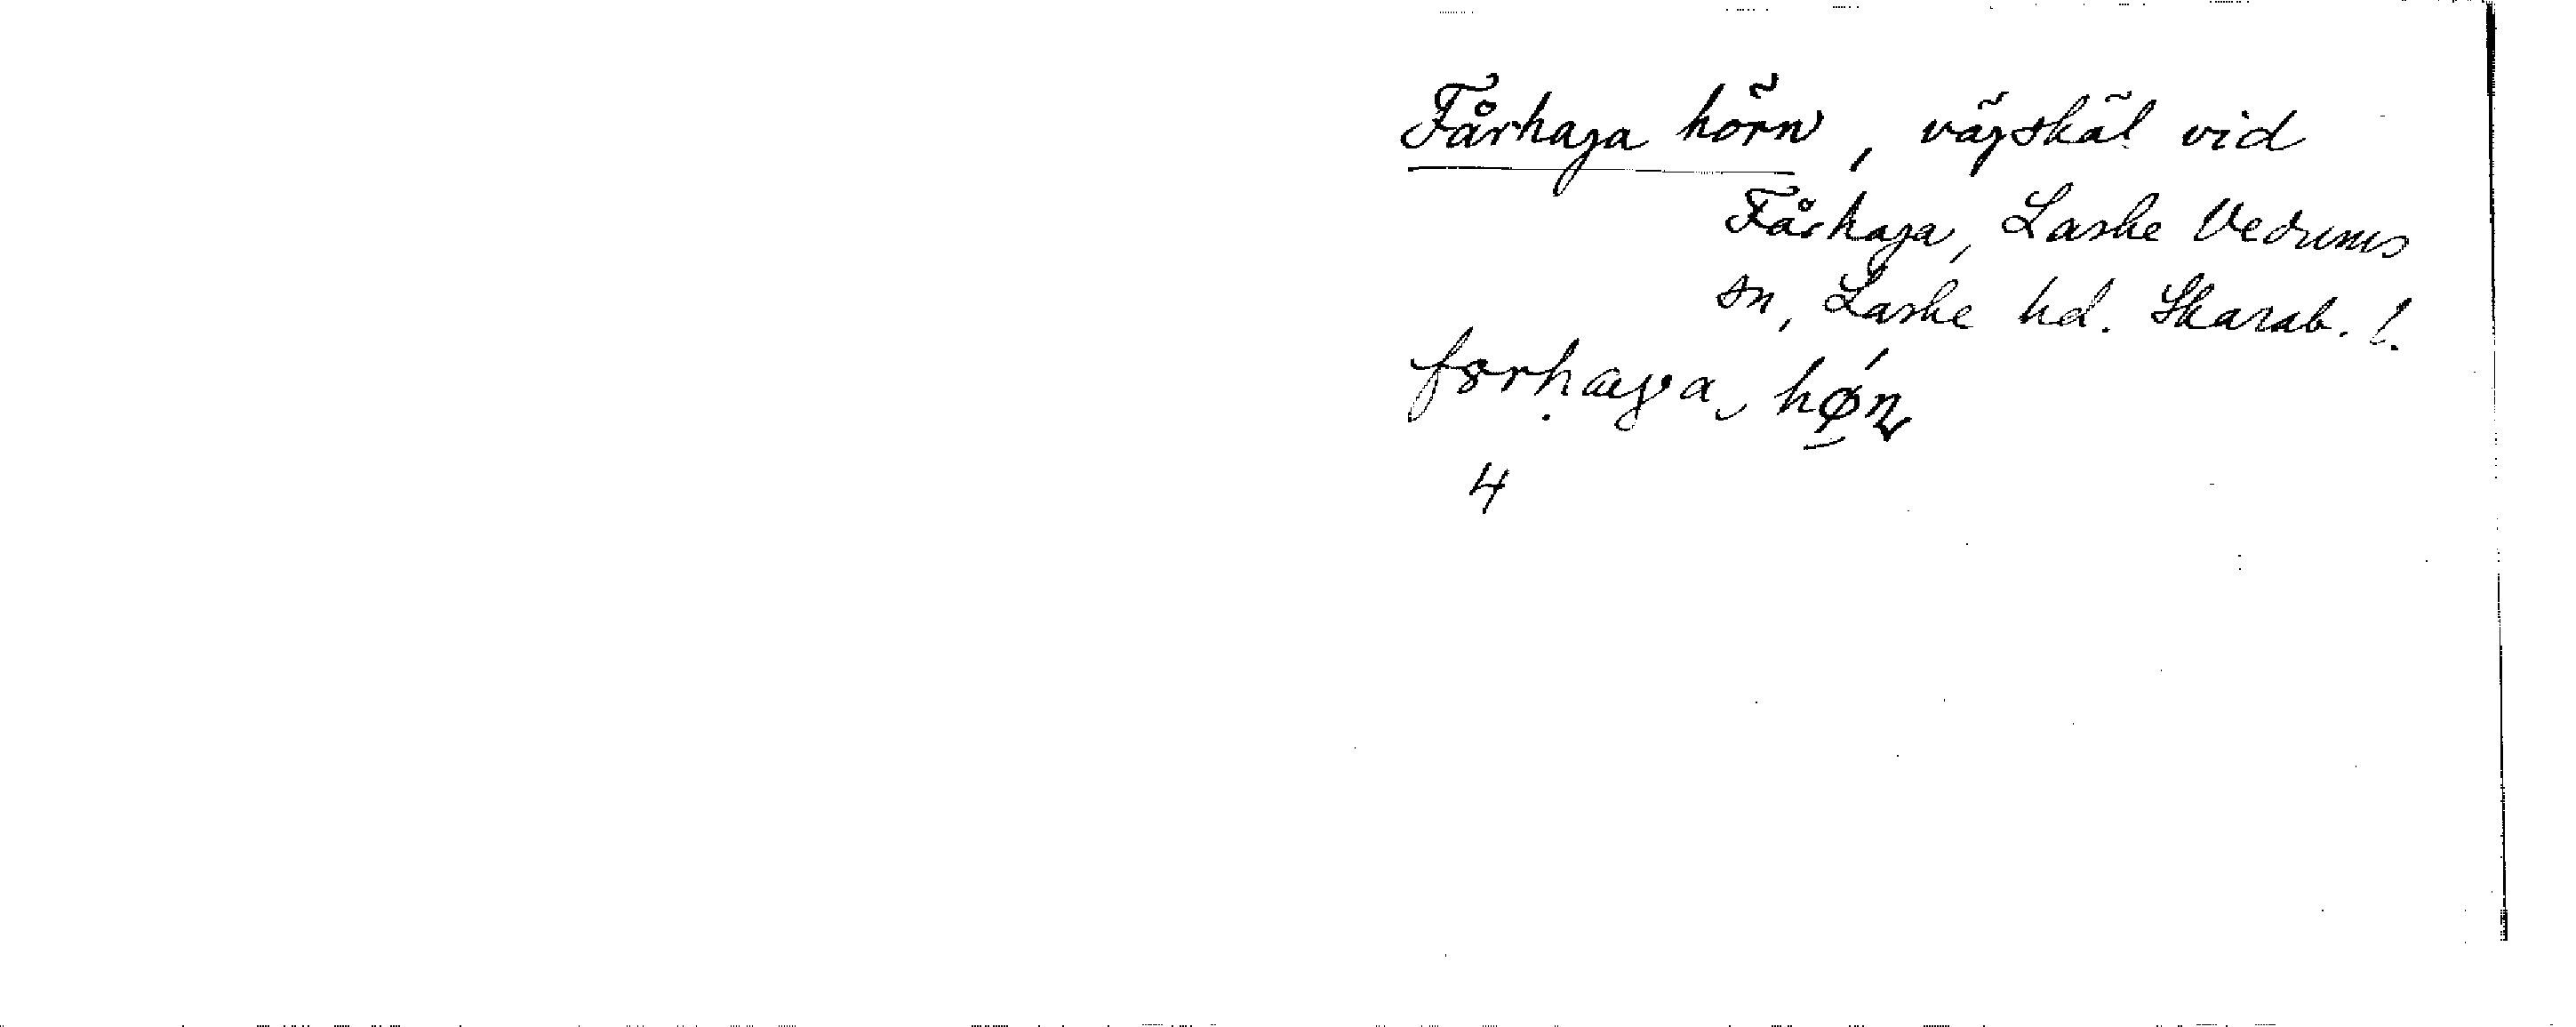 Fårhaga hörn, vägskäl vid
Fårhaga, Laske Vedums
sn, Laske hd. Skarab. l.
førhaga høn
4